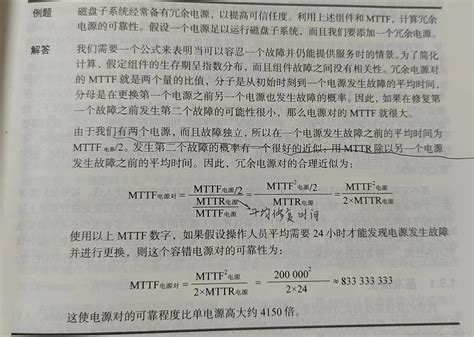 例题 磁盘子系统经常备有冗余电源，以提高可信任度。利用上述组件和 MTTF，计算冗余
电源的可靠性。假设一个电源足以运行磁盘子系统，而且我们要添加一个冗余电源。
解答 我们需要一个公式来表明当可以容忍一个故障并仍能提供服务时的情景。为了简化
计算，假定组件的生存期呈指数分布，而且组件故障之间没有相关性。冗余电源对
的 MTTF 就是两个量的比值，分子是从初始时刻到一个电源发生故障的平均时间，
分母是在更换第一个电源之前另一个电源也发生故障的概率。因此，如果在修复第
一个故障之前发生第二个故障的可能性很小，那么电源对的 MTTF 就很大。
由于我们有两个电源，而且故障独立，所以在一个电源发生故障之前的平均时间为
MTTF电源/2。发生第二个故障的概率有一个很好的近似，用 MTTR 除以另一个电源
发生故障之前的平均时间。因此，冗余电源对的合理近似为：
MTTF电源对 = (MTTF电源/2) / (MTTR电源/MTTF电源) = (MTTF²电源/2) / MTTR电源 = MTTF²电源 / (2×MTTR电源)
平均修复时间
使用以上 MTTF 数字，如果假设操作人员平均需要 24 小时才能发现电源发生故障
并进行更换，则这个容错电源对的可靠性为：
MTTF电源对 = MTTF²电源 / (2×MTTR电源) = 200 000² / (2×24) ≈ 833 333 333
这使电源对的可靠程度比单电源高大约 4150 倍。